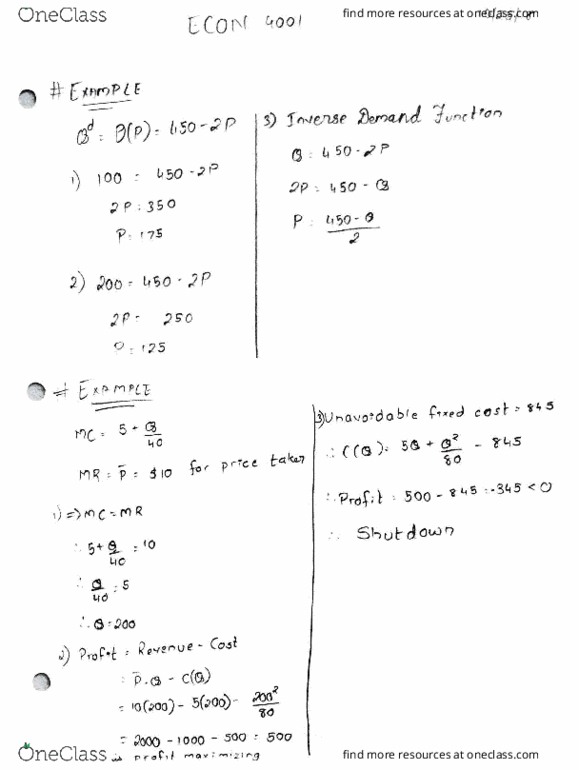 OneClass
find more resources at oneclass.com
ECON 4001
# EXAMPLE
Qᵈ = D(P) = 450 - 2P
1) 100 = 450 - 2P
2P = 350
P = 175
2) 200 = 450 - 2P
2P = 250
P = 125
3) Inverse Demand Function
Q = 450 - 2P
2P = 450 - Q
P = (450 - Q)/2
# EXAMPLE
MC = 5 + Q/40
MR = P̄ = $10 for price taker
1) => MC = MR
∴ 5 + Q/40 = 10
∴ Q/40 = 5
∴ Q = 200
2) Profit = Revenue - Cost
= P̄.Q - C(Q)
= 10(200) - 5(200) - 200²/80
= 2000 - 1000 - 500 = 500
is profit maximizing
3) Unavoidable fixed cost = 845
∴ C(Q) = 5Q + Q²/80 - 845
∴ Profit = 500 - 845 = -345 < 0
∴ Shutdown
OneClass
find more resources at oneclass.com